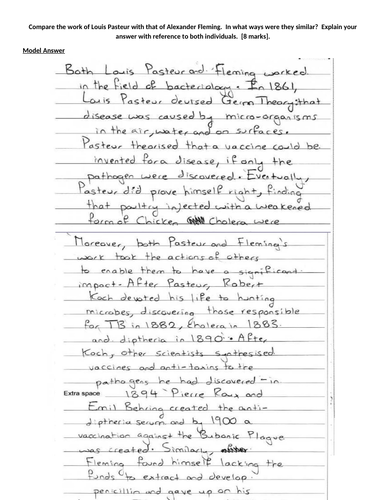 Compare the work of Louis Pasteur with that of Alexander Fleming.  In what ways were they similar?  Explain your
answer with reference to both individuals.  [8 marks].
Model Answer
Both Louis Pasteur and Fleming worked
in the field of bacteriology. In 1861,
Louis Pasteur devised Germ Theory: that
disease was caused by micro-organisms
in the air, water and on surfaces.
Pasteur theorised that a vaccine could be
invented for a disease, if only the
pathogen were discovered. Eventually,
Pasteur did prove himself right, finding
that poultry injected with a weakened
form of Chicken Cholera were
Moreover, both Pasteur and Fleming's
work took the actions of others
to enable them to have a significant
impact. After Pasteur, Robert
Koch devoted his life to hunting
microbes, discovering those responsible
for TB in 1882, Cholera in 1883
and diptheria in 1890. After
Koch, other scientists synthesised
vaccines and anti-toxins to the
pathogens he had discovered - in
Extra space 1894 Pierre Roux and
Emil Behring created the anti-
diptheria serum and by 1900 a
vaccination against the Bubonic Plague
was created. Similarly,
Fleming found himself lacking the
funds to extract and develop
penicillin and gave up on his